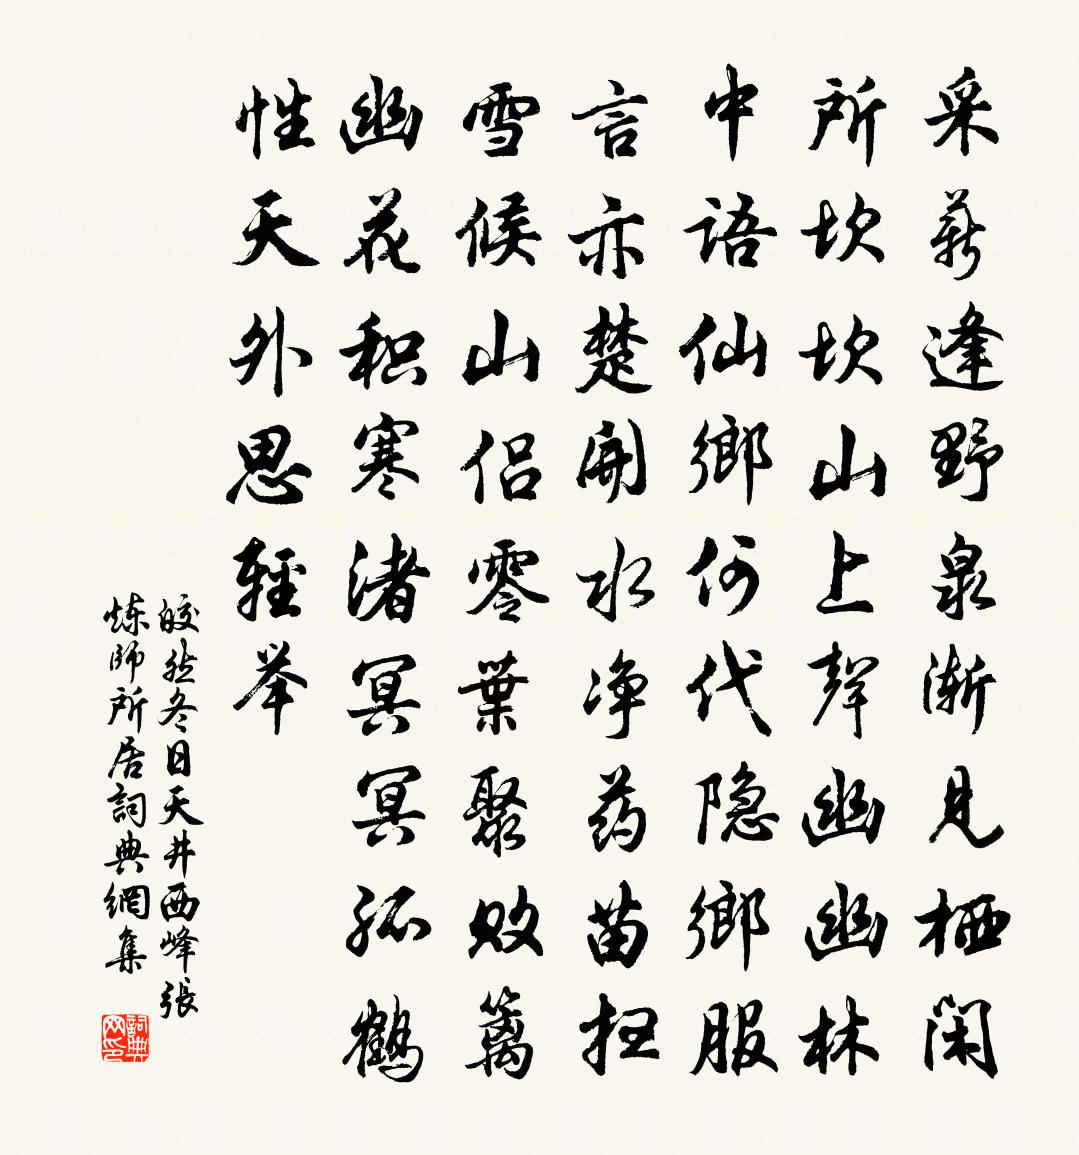 采薪逢野泉渐见栖闲
所坎坎山上聲幽幽林
中語仙鄉何代隐鄉服
言亦楚開水净药苗拄
雪候山侣零葉聚敗篱
幽花积寒渚冥冥孤鶴
性天外思輕举
皎然冬日天井西峰張
炼師所居詞典網集
詞典